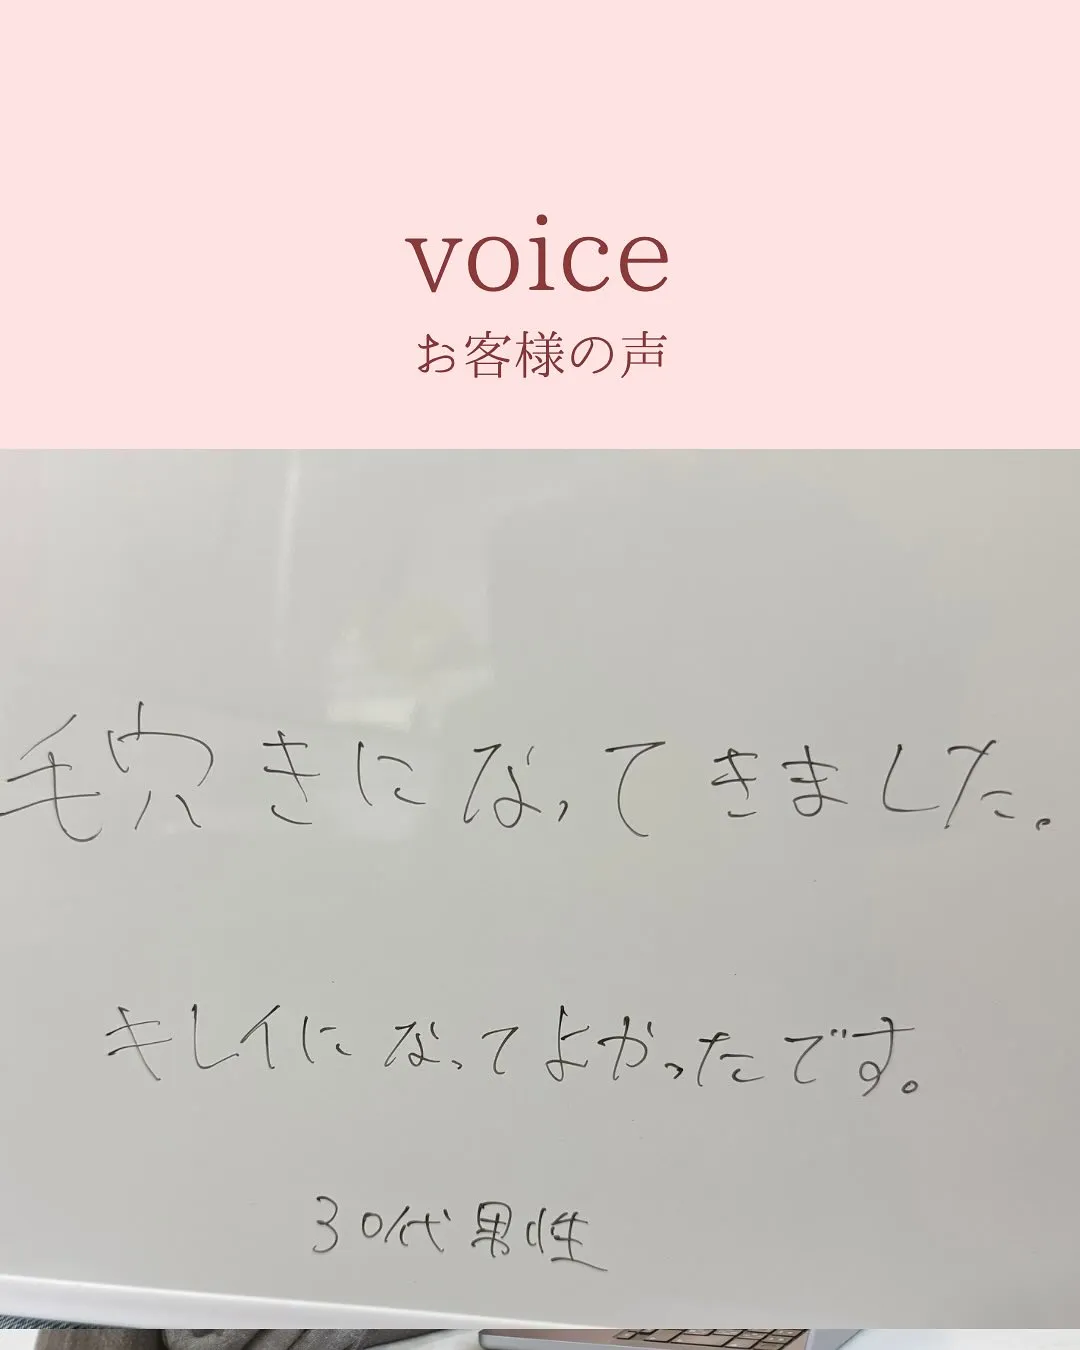 voice
お客様の声
毛穴きになってきました。
キレイになってよかったです。
30代男性